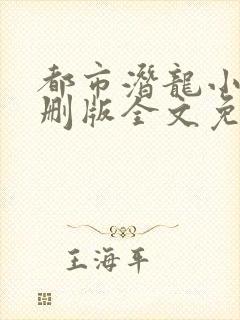 都市潛龍小
刪版全文免
王海平